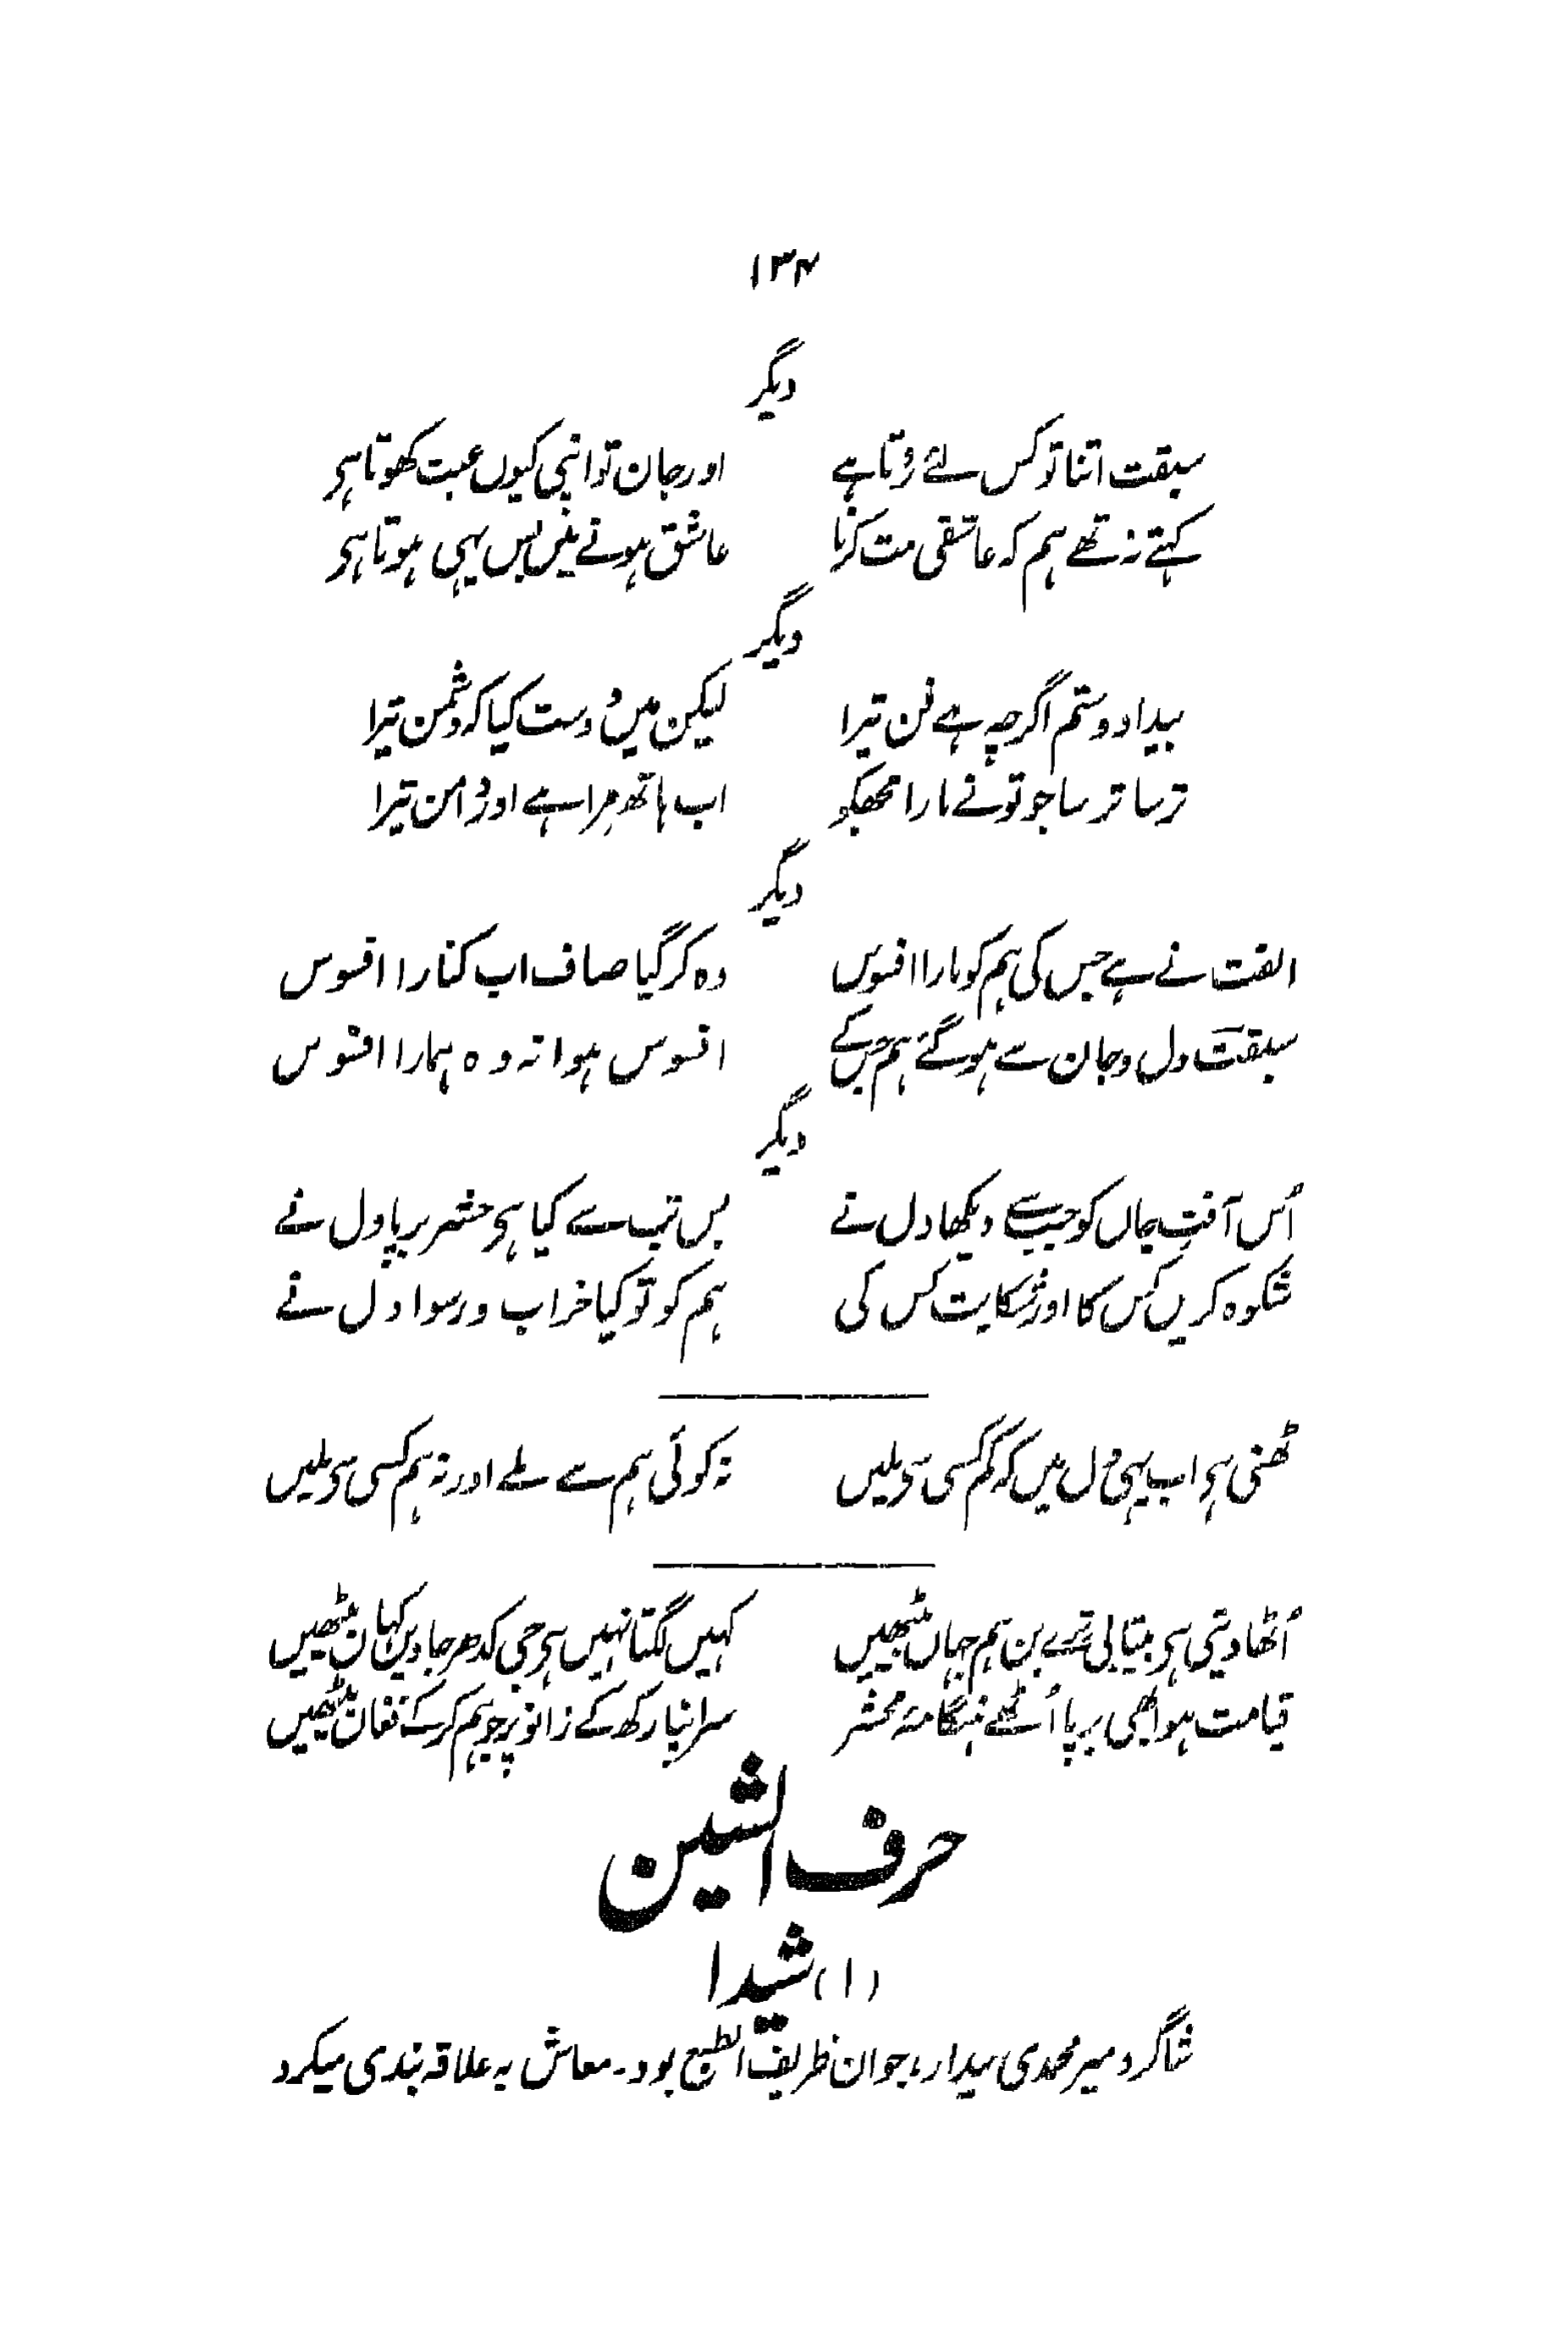 ۱۳۴
دیگر
سبقت اتنا تو کس لئے روتا ہے اور جان تو اپنی کیوں عبت کھوتا ہی
کہتے نہ تھے ہم کہ عاشقی مت کرنا عاشق ہونے میں بس یہی ہوتا ہی
دیگر
بیداد و ستم اگرچہ ہے فن تیرا لیکن میں دوست کیا کہ دشمن تیرا
ترسا ترسا جو تو نے مارا مجھکو اب ہاتھ مرا ہے اور دامن تیرا
دیگر
الفت نے ہے جس کی ہم کو مارا افسوس وہ کر گیا صاف اب کنارا افسوس
سبقت دل و جان سے ہو گئے ہم جس کے افسوس ہوا نہ وہ ہمارا افسوس
دیگر
اُس آفتِ جاں کو جب سے دیکھا دل نے بس تب سے کیا ہی حشر برپا دل نے
شکوہ کریں کس کا اور شکایت کس کی ہم کو تو کیا خراب و رسوا دل نے
ٹھنی ہی اب یہی دل میں کہ کم کسی سی ملیں نہ کوئی ہم سے ملے اور نہ ہم کسی سی ملیں
اُٹھا دیتی ہی بیتابی ترے بن ہم جہاں بیٹھیں کہیں لگتا نہیں ہی جی کدھر جاویں کہاں بیٹھیں
قیامت ہو ابھی برپا اُٹھے ہنگامۂ محشر سر اپنا رکھ کے زانو پر جو ہم کر کے فغاں بیٹھیں
حرف الشین
(۱) شیدا
شاگرد میر محمدی بیدار، جوان ظریف الطبع بود۔ معاش بہ علاقہ بندی میکرد